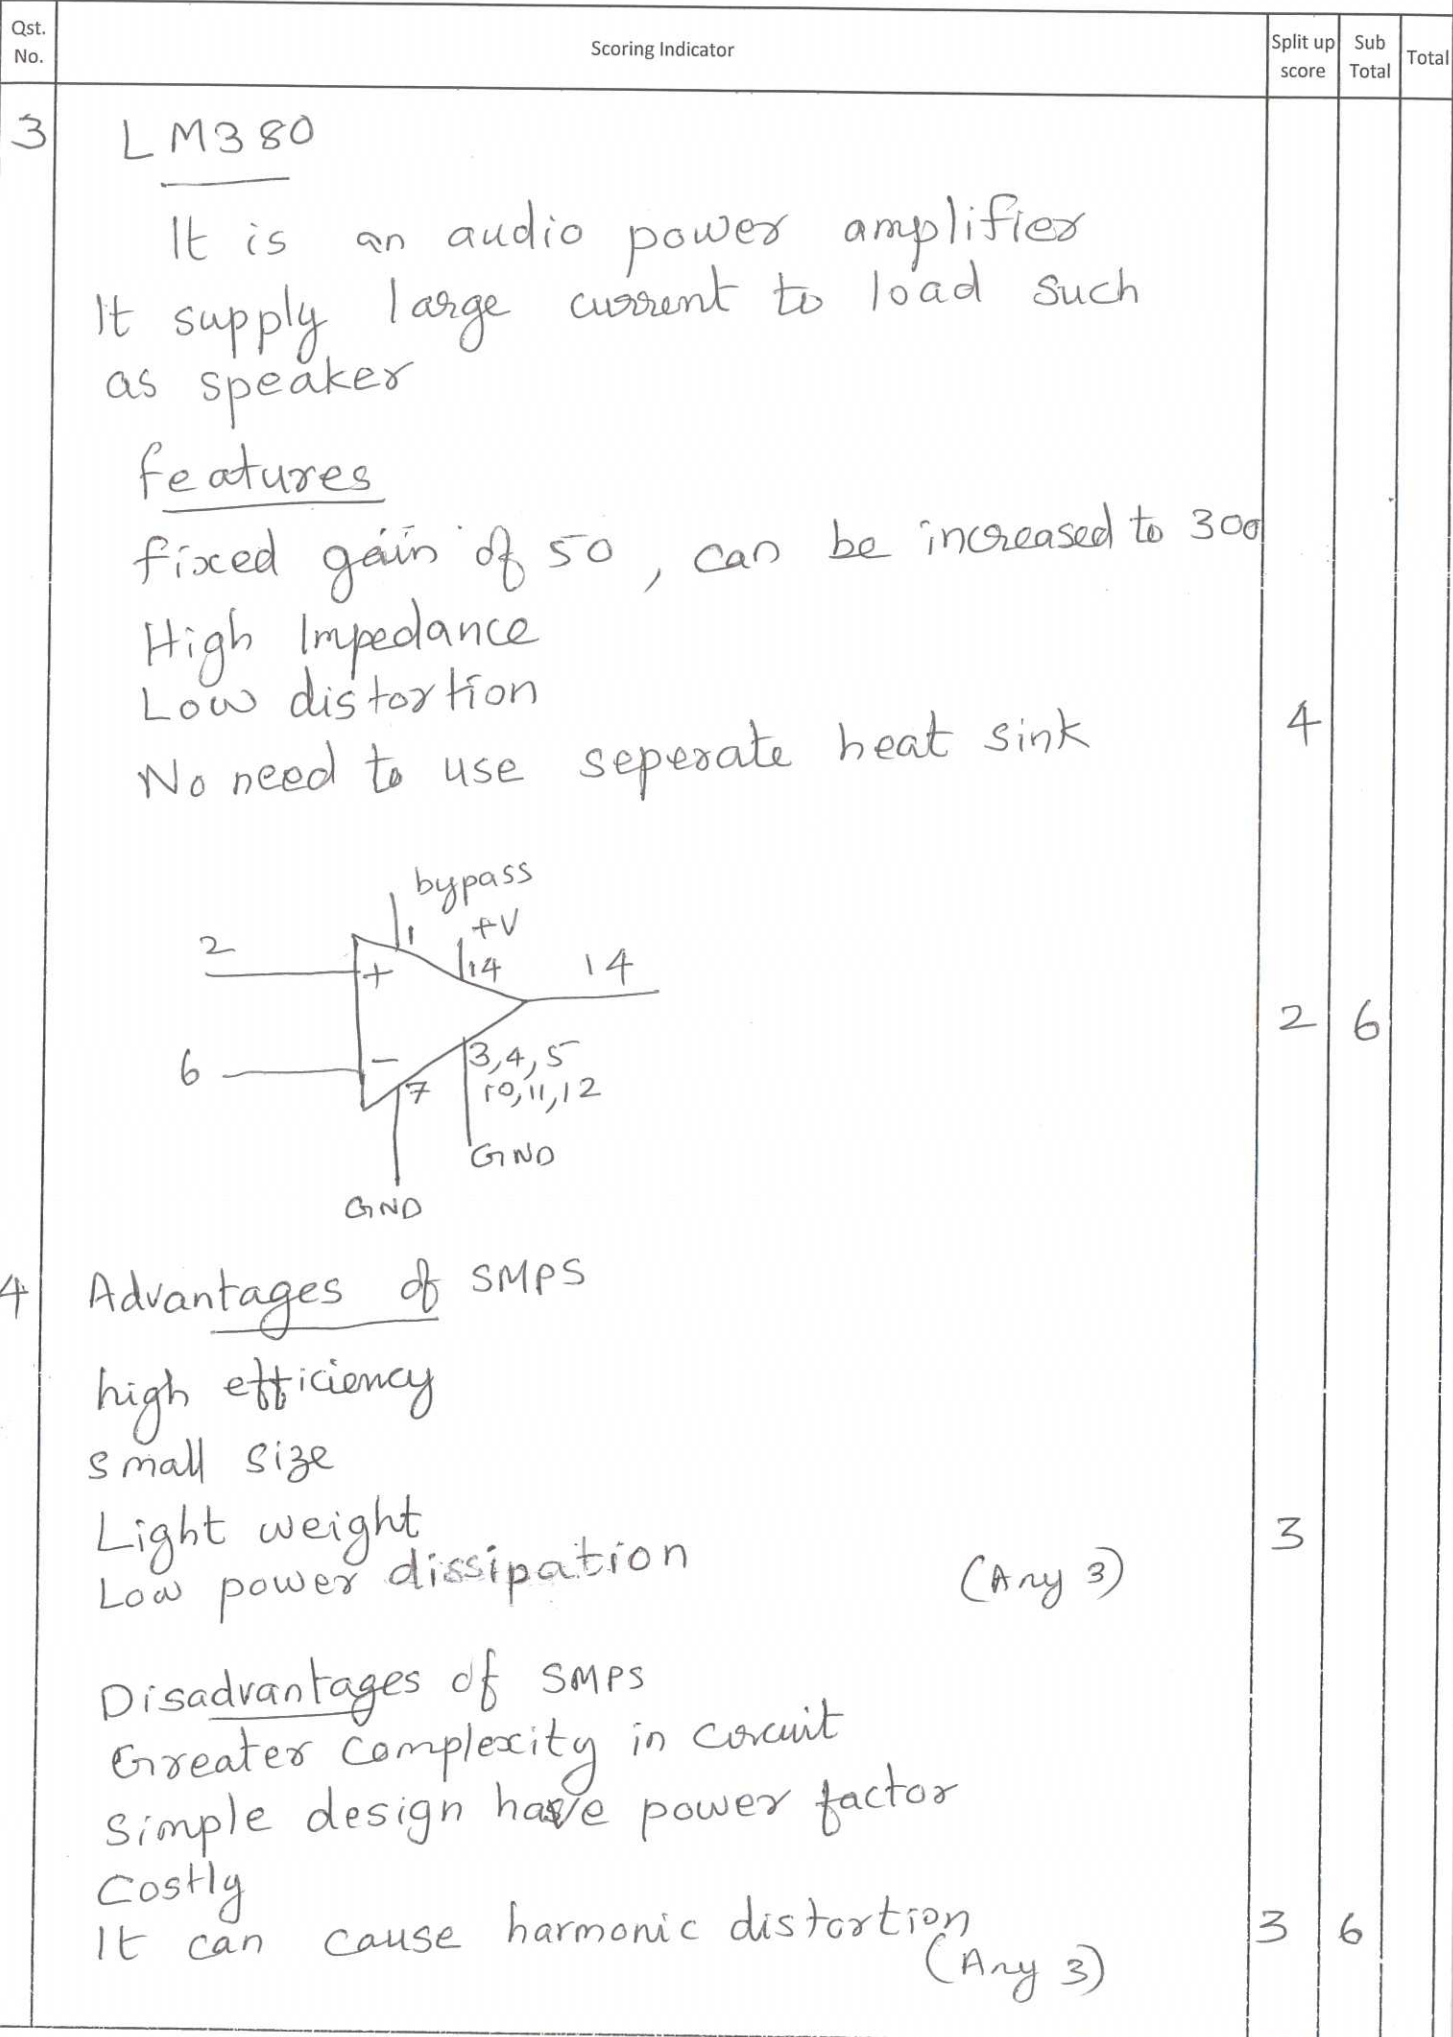 Qst. No.
Scoring Indicator
Split up score
Sub Total
Total
3
LM380
It is an audio power amplifier
It supply large current to load such
as speaker
features
fixed gain of 50, can be increased to 300
High Impedance
Low distortion
4
No need to use seperate heat sink
bypass
1
+V
14
2
+
14
2 6
6
-
7
3,4,5
10,11,12
GND
GND
4 Advantages of SMPS
high efficiency
small size
Light weight
3
Low power dissipation (Any 3)
Disadvantages of SMPS
Greater complexity in circuit
simple design have power factor
costly
It can cause harmonic distortion 3 6
(Any 3)